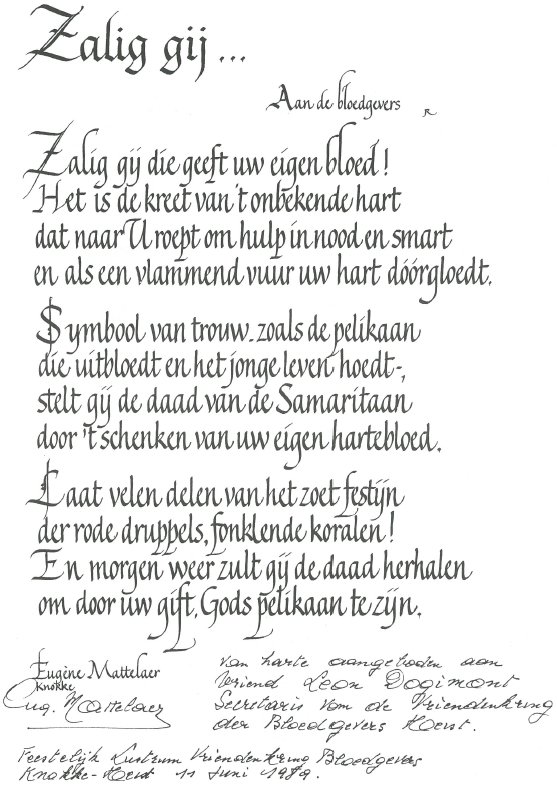 Zalig gij ...
Aan de bloedgevers
Zalig gij die geeft uw eigen bloed!
Het is de kreet van 't onbekende hart
dat naar U roept om hulp in nood en smart
en als een vlammend vuur uw hart dóórgloedt.
Symbool van trouw - zoals de pelikaan
die uitbloedt en het jonge leven hoedt -,
stelt gij de daad van de Samaritaan
door 't schenken van uw eigen hartebloed.
Laat velen delen van het zoet festijn
der rode druppels, fonklende koralen!
En morgen weer zult gij de daad herhalen
om door uw gift, Gods pelikaan te zijn.
Eugène Mattelaer
Knokke
Eug. Mattelaer
Van harte aangeboden aan
Vriend Leon Dogimont
Secretaris van de Vriendenkring
der Bloedgevers Heist.
Feestelijk Lustrum Vriendenkring Bloedgevers
Knokke-Heist 11 Juni 1989.